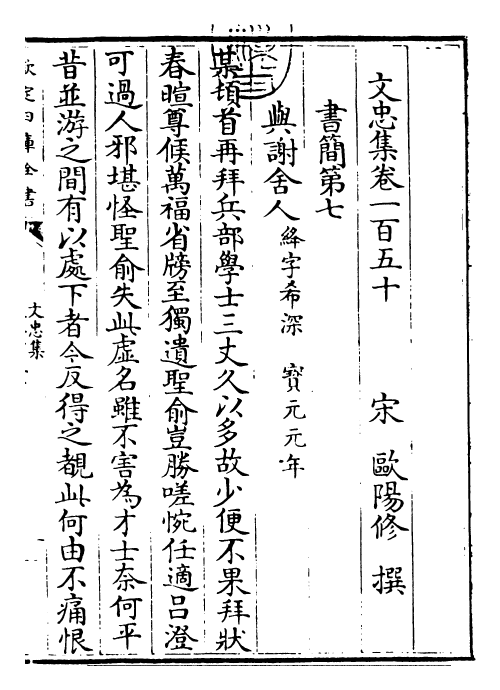 文忠集卷一百五十
宋 歐陽修 撰
書簡第七
與謝舍人 絳字希深 寳元元年
某頓首再拜兵部學士三丈久以多故少便不果拜狀
春暄尊候萬福省牓至獨遺聖俞豈勝嗟惋任適吕澄
可過人邪堪怪聖俞失此虛名雖不害為才士奈何平
昔並游之間有以處下者今反得之覩此何由不痛恨
欽定四庫全書
文忠集